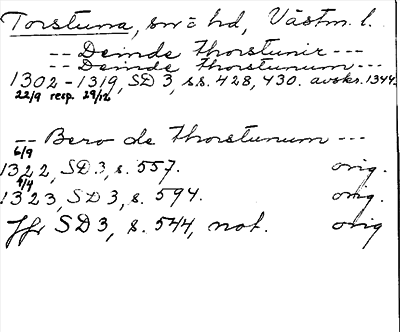 Torstuna, sn o hd, Västm. l.
-- Deinde Thorstunir ---
-- Deinde Thorstunum ---
1302 - 1319, SD 3, s.s. 428, 430. avskr. 1344.
22/9 resp. 29/12
-- Bero de Thorstunum ---
6/9
1322, SD 3, s. 557. orig.
4/4
1323, SD 3, s. 594. orig.
Jfr SD 3, s. 544, not. orig